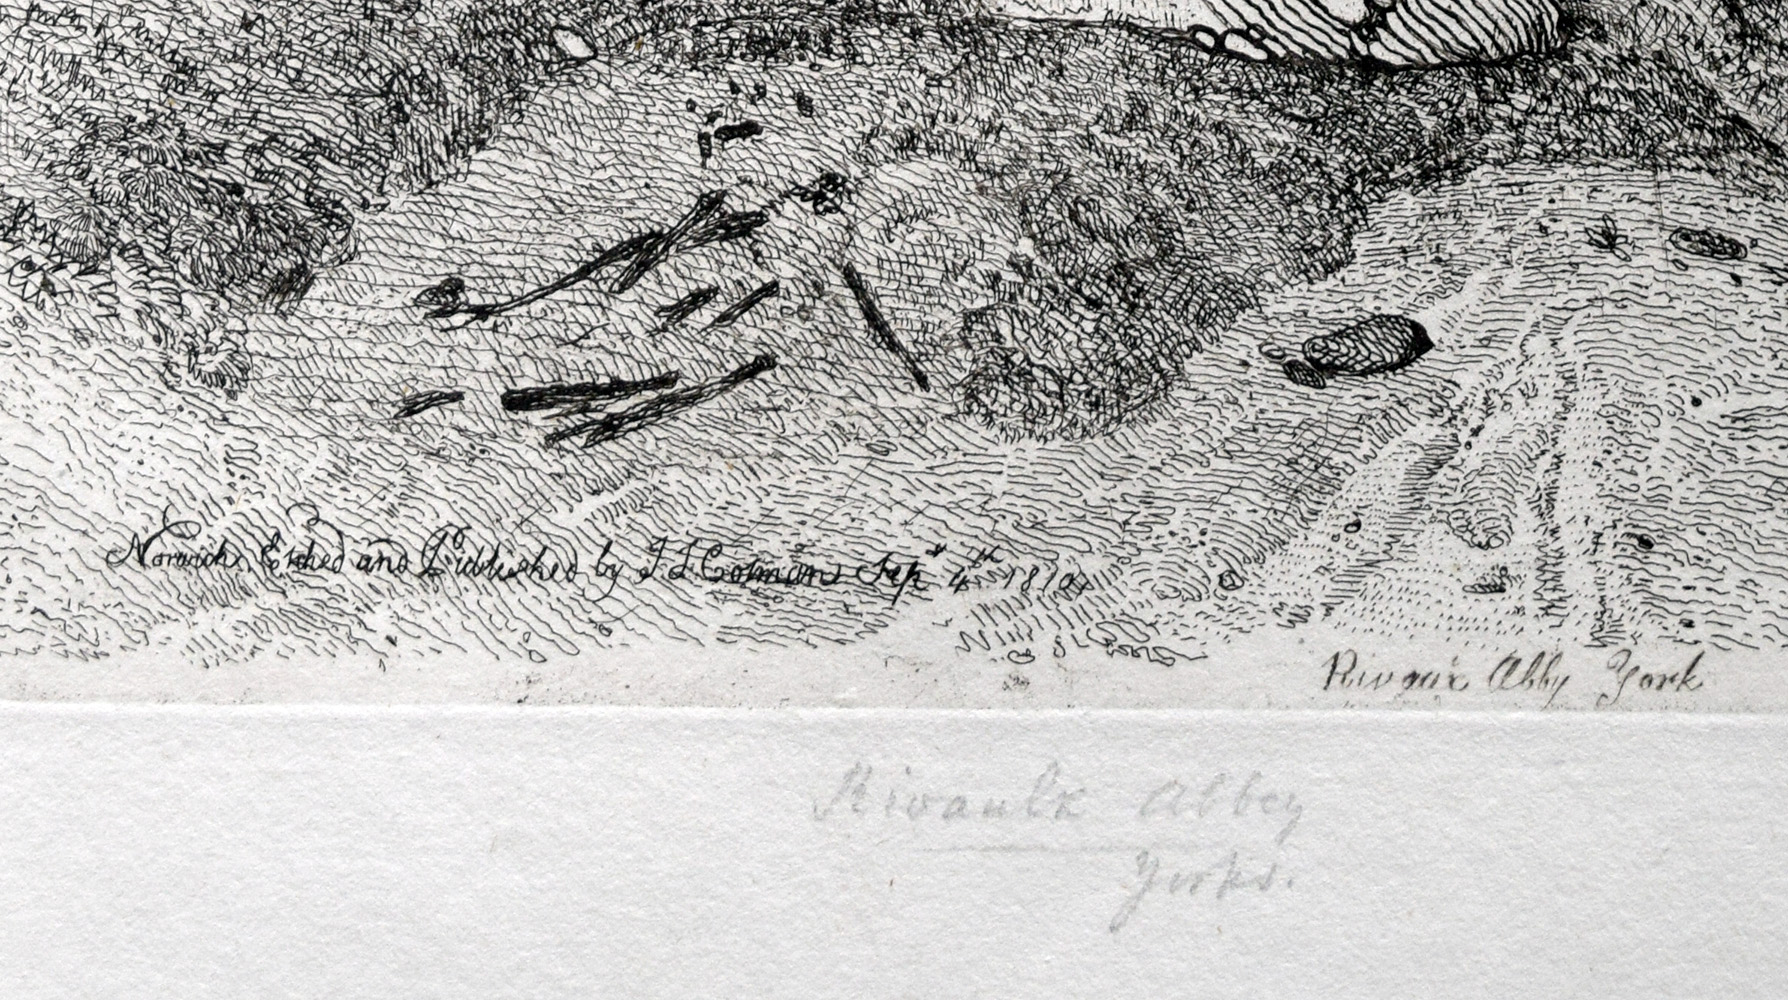 Norwich, Etched and Published by J S Cotman Sepr 4th 1810
Rivaux Abby York
Rivaulx Abbey
Yorks.